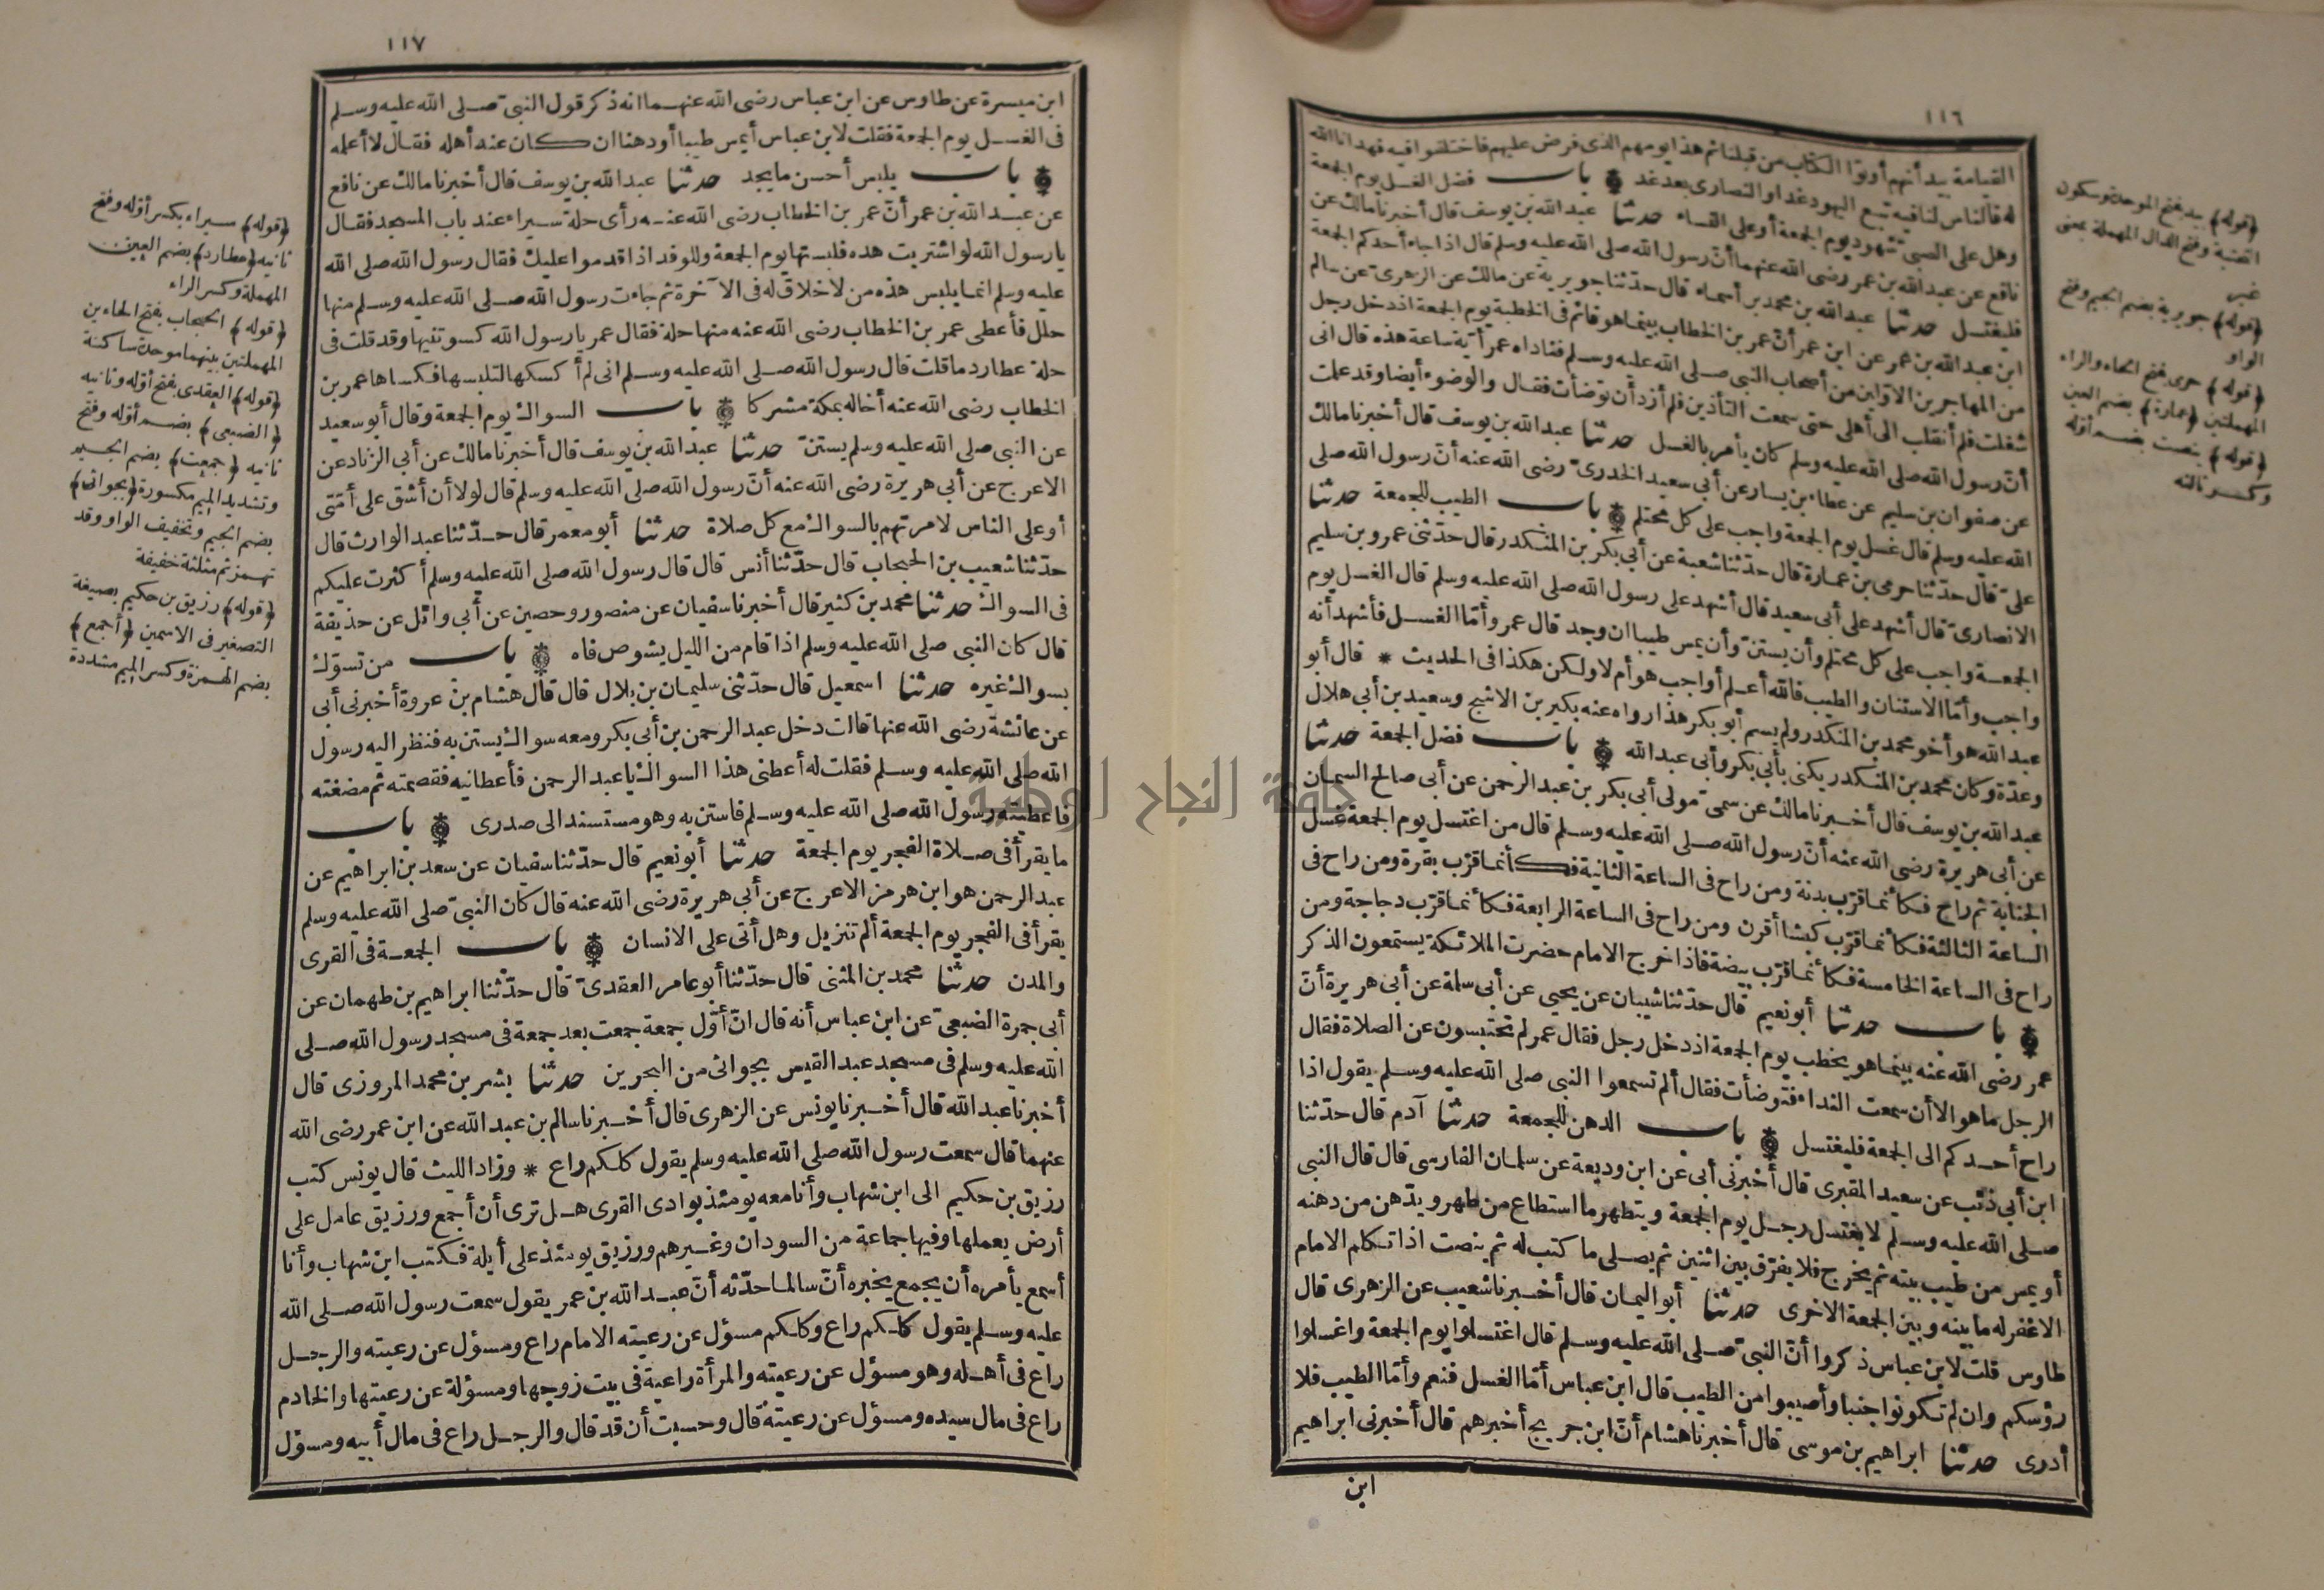 ١١٦
القيامة بيد أنهم أوتوا الكتاب من قبلنا ثم هذا يومهم الذى فرض عليهم فاختلفوا فيه فهدانا الله
له فالناس لنا فيه تبع اليهود غدا والنصارى بعد غد باب فضل الغسل يوم الجمعة
وهل على الصبى شهود يوم الجمعة أو على النساء حدثنا عبد الله بن يوسف قال أخبرنا مالك عن
نافع عن عبد الله بن عمر رضى الله عنهما أنّ رسول الله صلى الله عليه وسلم قال اذا جاء أحدكم الجمعة
فليغتسل حدثنا عبد الله بن محمد بن أسماء قال حدّثنا جويرية عن مالك عن الزهرى عن سالم
ابن عبد الله بن عمر عن ابن عمر أنّ عمر بن الخطاب بينما هو قائم فى الخطبة يوم الجمعة اذ دخل رجل
من المهاجرين الاوّلين من أصحاب النبى صلى الله عليه وسلم فناداه عمر أية ساعة هذه قال انى
شغلت فلم أنقلب الى أهلى حتى سمعت التأذين فلم أزد أن توضأت فقال والوضوء أيضا وقد علمت
أنّ رسول الله صلى الله عليه وسلم كان يأمر بالغسل حدثنا عبد الله بن يوسف قال أخبرنا مالك
عن صفوان بن سليم عن عطاء بن يسار عن أبى سعيد الخدرىّ رضى الله عنه أنّ رسول الله صلى
الله عليه وسلم قال غسل يوم الجمعة واجب على كل محتلم باب الطيب للجمعة حدثنا
علىّ قال حدّثنا حرمى بن عمارة قال حدّثنا شعبة عن أبى بكر بن المنكدر قال حدّثنى عمرو بن سليم
الانصارىّ قال أشهد على أبى سعيد قال أشهد على رسول الله صلى الله عليه وسلم قال الغسل يوم
الجمعة واجب على كل محتلم وأن يستنّ وأن يمس طيبا ان وجد قال عمرو أمّا الغسل فأشهد أنه
واجب وأمّا الاستنان والطيب فالله أعلم أواجب هو أم لا ولكن هكذا فى الحديث * قال أبو
عبد الله هو أخو محمد بن المنكدر ولم يسم أبو بكر هذا رواه عنه بكير بن الاشج وسعيد بن أبى هلال
وعدّة وكان محمد بن المنكدر يكنى بأبى بكر وأبى عبد الله باب فضل الجمعة حدثنا
عبد الله بن يوسف قال أخبرنا مالك عن سمى مولى أبى بكر بن عبد الرحمن عن أبى صالح السمان
عن أبى هريرة رضى الله عنه أنّ رسول الله صلى الله عليه وسلم قال من اغتسل يوم الجمعة غسل
الجنابة ثم راح فكأنما قرّب بدنة ومن راح فى الساعة الثانية فكأنما قرّب بقرة ومن راح فى
الساعة الثالثة فكأنما قرّب كبشا أقرن ومن راح فى الساعة الرابعة فكأنما قرّب دجاجة ومن
راح فى الساعة الخامسة فكأنما قرّب بيضة فاذا خرج الامام حضرت الملائكة يستمعون الذكر
باب حدثنا أبو نعيم قال حدّثنا شيبان عن يحيى عن أبى سلمة عن أبى هريرة أنّ
عمر رضى الله عنه بينما هو يخطب يوم الجمعة اذ دخل رجل فقال عمر لم تحتبسون عن الصلاة فقال
الرجل ما هو الا أن سمعت النداء فتوضأت فقال ألم تسمعوا النبى صلى الله عليه وسلم يقول اذا
راح أحدكم الى الجمعة فليغتسل باب الدهن للجمعة حدثنا آدم قال حدّثنا
ابن أبى ذئب عن سعيد المقبرى قال أخبرنى أبى عن ابن وديعة عن سلمان الفارسى قال قال النبى
صلى الله عليه وسلم لا يغتسل رجل يوم الجمعة ويتطهر ما استطاع من طهر ويدّهن من دهنه
أو يمس من طيب بيته ثم يخرج فلا يفرّق بين اثنين ثم يصلى ما كتب له ثم ينصت اذا تكلم الامام
الا غفر له ما بينه وبين الجمعة الاخرى حدثنا أبو اليمان قال أخبرنا شعيب عن الزهرى قال
طاوس قلت لابن عباس ذكروا أنّ النبىّ صلى الله عليه وسلم قال اغتسلوا يوم الجمعة واغسلوا
رؤسكم وان لم تكونوا جنبا وأصيبوا من الطيب قال ابن عباس أمّا الغسل فنعم وأمّا الطيب فلا
أدرى حدثنا ابراهيم بن موسى قال أخبرنا هشام أنّ ابن جريج أخبرهم قال أخبرنى ابراهيم
ابن
﴿قوله﴾ بيد بفتح الموحدة وسكون
التحتية وفتح الدال المهملة بمعنى
غير
﴿قوله﴾ جويرية بضم الجيم وفتح
الواو
﴿قوله﴾ حرمى بفتح الحاء والراء
المهملتين ﴿عمارة﴾ بضم العين
﴿قوله﴾ ينصت بضم أوّله
وكسر ثالثه
١١٧
ابن ميسرة عن طاوس عن ابن عباس رضى الله عنهما انه ذكر قول النبىّ صلى الله عليه وسلم
فى الغسل يوم الجمعة فقلت لابن عباس أيمس طيبا أو دهنا ان كان عند أهله فقال لا أعلمه
باب يلبس أحسن ما يجد حدثنا عبد الله بن يوسف قال أخبرنا مالك عن نافع
عن عبد الله بن عمر أنّ عمر بن الخطاب رضى الله عنه رأى حلة سيراء عند باب المسجد فقال
يا رسول الله لو اشتريت هذه فلبستها يوم الجمعة وللوفد اذا قدموا عليك فقال رسول الله صلى الله
عليه وسلم انما يلبس هذه من لا خلاق له فى الآخرة ثم جاءت رسول الله صلى الله عليه وسلم منها
حلل فأعطى عمر بن الخطاب رضى الله عنه منها حلة فقال عمر يا رسول الله كسوتنيها وقد قلت فى
حلة عطارد ما قلت قال رسول الله صلى الله عليه وسلم انى لم أكسكها لتلبسها فكساها عمر بن
الخطاب رضى الله عنه أخا له بمكة مشركا باب السواك يوم الجمعة وقال أبو سعيد
عن النبى صلى الله عليه وسلم يستنّ حدثنا عبد الله بن يوسف قال أخبرنا مالك عن أبى الزناد عن
الاعرج عن أبى هريرة رضى الله عنه أنّ رسول الله صلى الله عليه وسلم قال لولا أن أشق على أمّتى
أو على الناس لامرتهم بالسواك مع كل صلاة حدثنا أبو معمر قال حدّثنا عبد الوارث قال
حدّثنا شعيب بن الحبحاب قال حدّثنا أنس قال قال رسول الله صلى الله عليه وسلم أكثرت عليكم
فى السواك حدثنا محمد بن كثير قال أخبرنا سفيان عن منصور وحصين عن أبى وائل عن حذيفة
قال كان النبى صلى الله عليه وسلم اذا قام من الليل يشوص فاه باب من تسوّك
بسواك غيره حدثنا اسمعيل قال حدّثنى سليمان بن بلال قال قال هشام بن عروة أخبرنى أبى
عن عائشة رضى الله عنها قالت دخل عبد الرحمن بن أبى بكر ومعه سواك يستن به فنظر اليه رسول
الله صلى الله عليه وسلم فقلت له أعطنى هذا السواك يا عبد الرحمن فأعطانيه فقصمته ثم مضغته
فأعطيته رسول الله صلى الله عليه وسلم فاستن به وهو مستسند الى صدرى باب
ما يقرأ فى صلاة الفجر يوم الجمعة حدثنا أبو نعيم قال حدّثنا سفيان عن سعد بن ابراهيم عن
عبد الرحمن هو ابن هرمز الاعرج عن أبى هريرة رضى الله عنه قال كان النبىّ صلى الله عليه وسلم
يقرأ فى الفجر يوم الجمعة ألم تنزيل وهل أتى على الانسان باب الجمعة فى القرى
والمدن حدثنا محمد بن المثنى قال حدّثنا أبو عامر العقدىّ قال حدّثنا ابراهيم بن طهمان عن
أبى جمرة الضبعىّ عن ابن عباس أنه قال انّ أوّل جمعة جمعت بعد جمعة فى مسجد رسول الله صلى
الله عليه وسلم فى مسجد عبد القيس بجواثى من البحرين حدثنا بشر بن محمد المروزى قال
أخبرنا عبد الله قال أخبرنا يونس عن الزهرى قال أخبرنا سالم بن عبد الله عن ابن عمر رضى الله
عنهما قال سمعت رسول الله صلى الله عليه وسلم يقول كلكم راع * وزاد الليث قال يونس كتب
رزيق بن حكيم الى ابن شهاب وأنا معه يومئذ بوادى القرى هل ترى أن أجمع ورزيق عامل على
أرض يعملها وفيها جماعة من السودان وغيرهم ورزيق يومئذ على أيلة فكتب ابن شهاب وأنا
أسمع يأمره أن يجمع يخبره أنّ سالما حدّثه أنّ عبد الله بن عمر يقول سمعت رسول الله صلى الله
عليه وسلم يقول كلكم راع وكلكم مسؤل عن رعيته الامام راع ومسؤل عن رعيته والرجل
راع فى أهله وهو مسؤل عن رعيته والمرأة راعية فى بيت زوجها ومسؤلة عن رعيتها والخادم
راع فى مال سيده ومسؤل عن رعيته قال وحسبت أن قد قال والرجل راع فى مال أبيه ومسؤل
﴿قوله﴾ سيراء بكسر أوّله وفتح
ثانيه ﴿عطارد﴾ بضم العين
المهملة وكسر الراء
﴿قوله﴾ الحبحاب بفتح الحاءين
المهملتين بينهما موحدة ساكنة
﴿قوله﴾ العقدى بفتح أوّله وثانيه
﴿الضبعى﴾ بضم أوّله وفتح
ثانيه ﴿جمعت﴾ بضم الجيم
وتشديد الميم مكسورة ﴿بجواثى﴾
بضم الجيم وتخفيف الواو وقد
تهمز ثم مثلثة خفيفة
﴿قوله﴾ رزيق بن حكيم بصيغة
التصغير فى الاسمين ﴿أجمع﴾
بضم الهمزة وكسر الميم مشددة
جامعة النجاح الوطنية